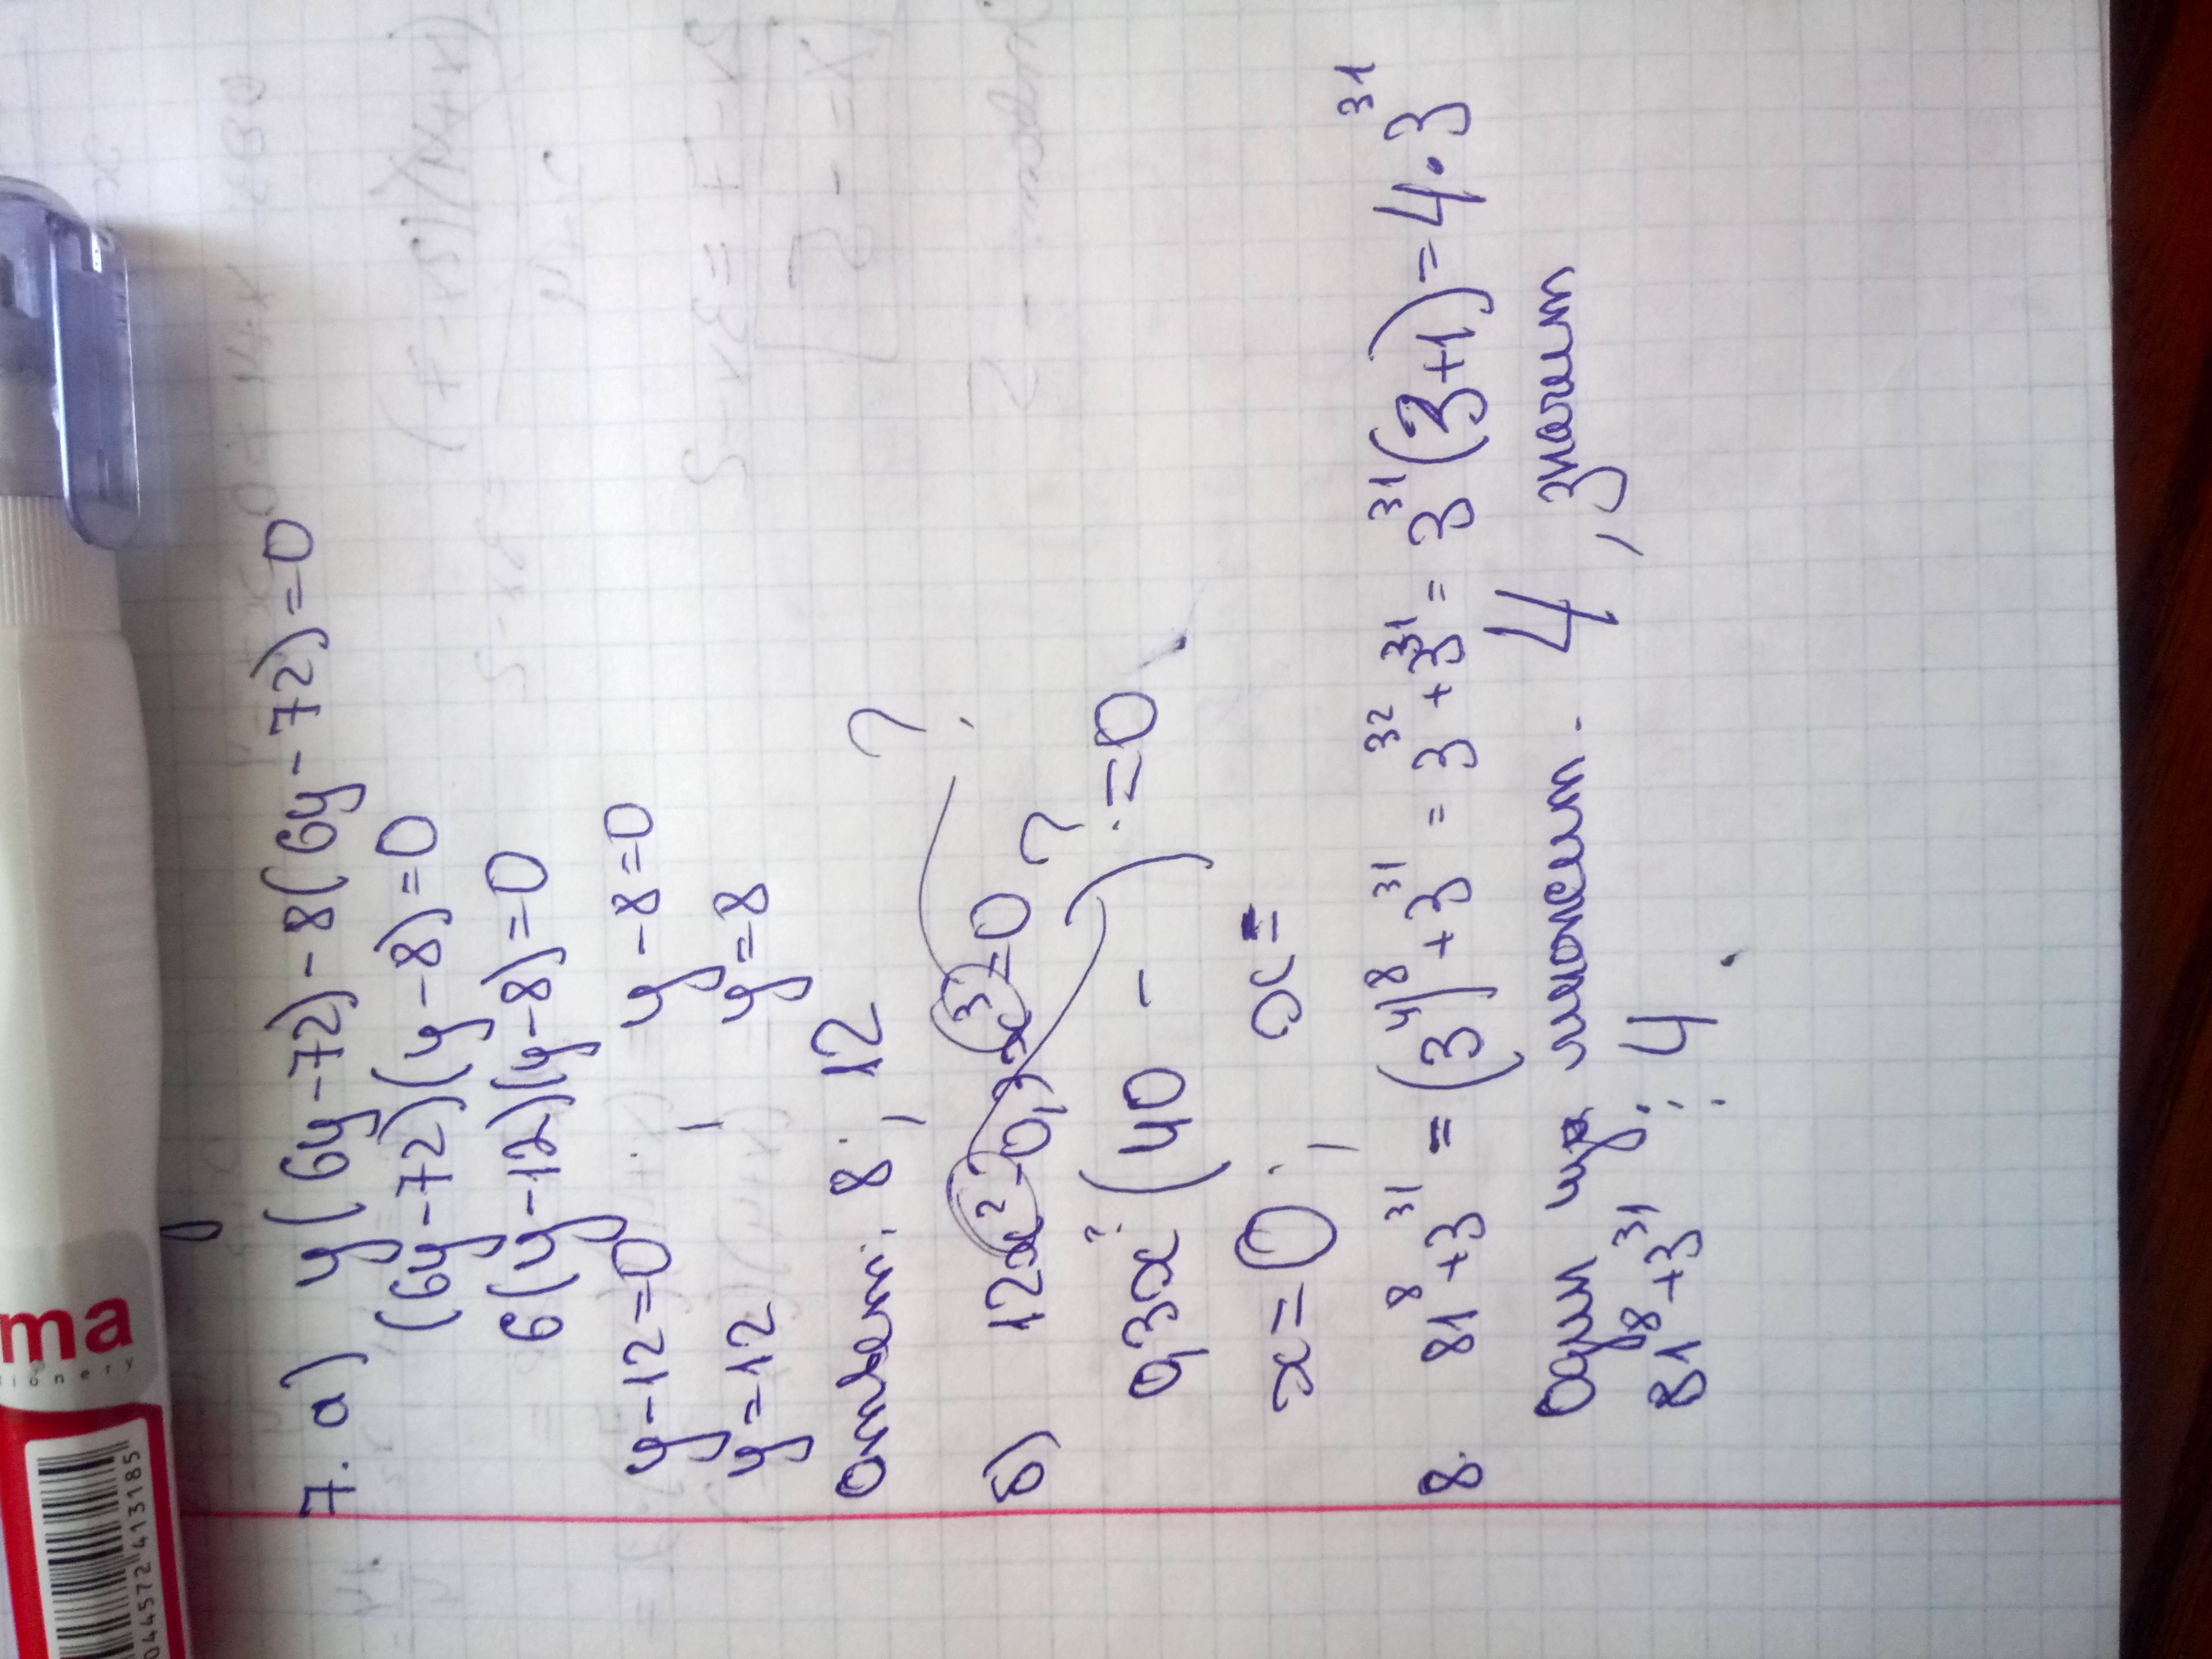 7. а) y(6y-72)-8(6y-72)=0
(6y-72)(y-8)=0
6(y-12)(y-8)=0
y-12=0 , y-8=0
y=12 y=8
Ответ: 8; 12
?
б) 12x²-0,3x³=0 ?
0,3x² (40 - ) =0
x=0 ; x=
8. 81⁸+3³¹ = (3⁴)⁸+3³¹ = 3³²+3³¹ = 3³¹(3+1) = 4·3³¹
Один из множит. 4, значит
81⁸+3³¹ ⋮ 4.
ma
ionery
044572 413185